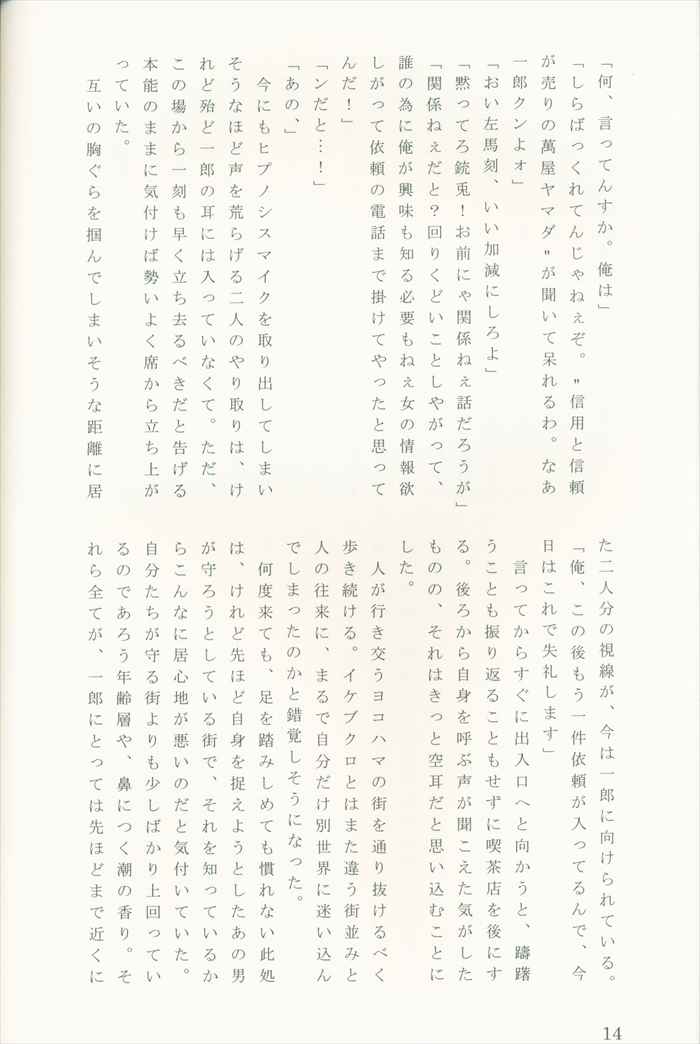 「何、言ってんすか。俺は」
「しらばっくれてんじゃねぇぞ。"信用と信頼
が売りの萬屋ヤマダ"が聞いて呆れるわ。なあ
一郎クンよォ」
「おい左馬刻、いい加減にしろよ」
「黙ってろ銃兎！お前にゃ関係ねぇ話だろうが」
「関係ねぇだと？回りくどいことしやがって、
誰の為に俺が興味も知る必要もねぇ女の情報欲
しがって依頼の電話まで掛けてやったと思って
んだ！」
「ンだと…！」
「あの、」
　今にもヒプノシスマイクを取り出してしまい
そうなほど声を荒らげる二人のやり取りは、け
れど殆ど一郎の耳には入っていなくて。ただ、
この場から一刻も早く立ち去るべきだと告げる
本能のままに気付けば勢いよく席から立ち上が
っていた。
　互いの胸ぐらを掴んでしまいそうな距離に居
た二人分の視線が、今は一郎に向けられている。
「俺、この後もう一件依頼が入ってるんで、今
日はこれで失礼します」
　言ってからすぐに出入口へと向かうと、躊躇
うことも振り返ることもせずに喫茶店を後にす
る。後ろから自身を呼ぶ声が聞こえた気がした
ものの、それはきっと空耳だと思い込むことに
した。
　人が行き交うヨコハマの街を通り抜けるべく
歩き続ける。イケブクロとはまた違う街並みと
人の往来に、まるで自分だけ別世界に迷い込ん
でしまったのかと錯覚しそうになった。
　何度来ても、足を踏みしめても慣れない此処
は、けれど先ほど自身を捉えようとしたあの男
が守ろうとしている街で、それを知っているか
らこんなに居心地が悪いのだと気付いていた。
自分たちが守る街よりも少しばかり上回ってい
るのであろう年齢層や、鼻につく潮の香り。そ
れら全てが、一郎にとっては先ほどまで近くに
14